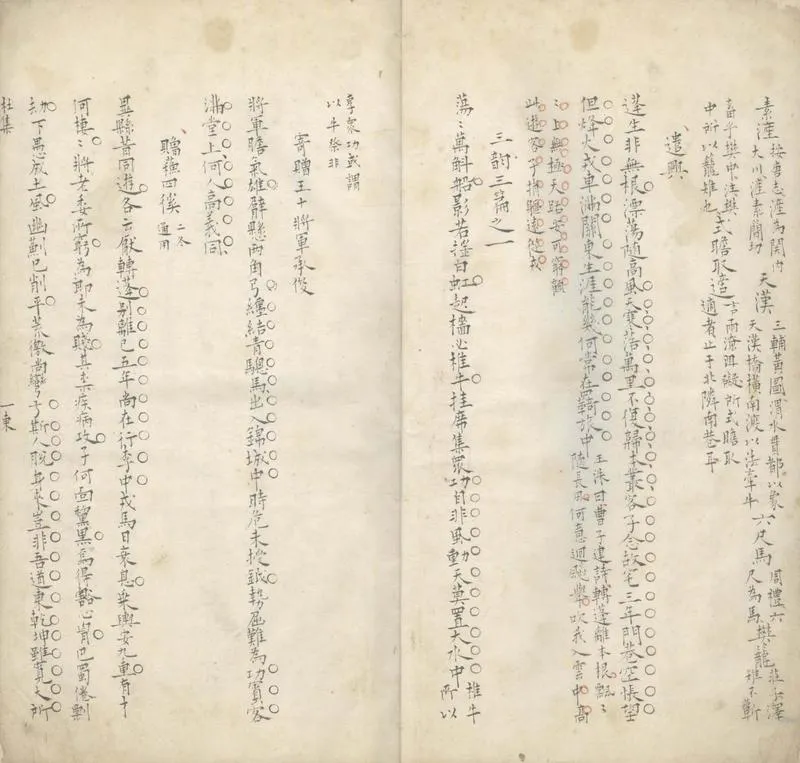 素滻 按唐志滻為關內大川滻素關切 天漢 三輔黃圖渭水貫都以象天漢橋橫南渡以法牽牛 六尺馬 周禮六尺為馬 樊籠 莊子澤雉不蘄
畜乎樊中注樊中所以籠雉也 式瞻取適 言雨潦阻礙所式瞻取適者止于北隣南巷耳
遣興
蓬生非無根漂蕩隨高風天寒落萬里不復歸本叢客子念故宅三年門巷空悵望
但烽火戎車滿關東生涯能幾何常在羇旅中 王洙曰曹子建詩轉蓬離本根飄〻隨長風何意迴飈舉吹我入雲中高
〻上無極天路安可窮類此遊客子捐軀遠從戎
三韻三篇之一
蕩〻萬斛船影若搖白虹起檣必椎牛挂席集衆功自非風動天莫置大水中 椎牛所以
享衆功或謂以牛祭非
寄贈王十將軍承俊
將軍膽氣雄臂懸兩角弓纏結青驄馬出入錦城中時危未授鉞勢屈難為功賓客
滿堂上何人高義同
贈蘇四徯 二冬通用
異縣昔同遊各云厭轉蓬別離已五年尚在行李中戎馬日衰息乘輿安九重有才
何棲〻將老委所窮為郎未為賤其奈疾病攻子何面黧黑焉得豁心胷巴蜀倦剽
劫下愚成土風幽薊已削平荒徼尚彎弓斯人脫身來豈非吾道東乾坤雖寬大所
杜集 一東